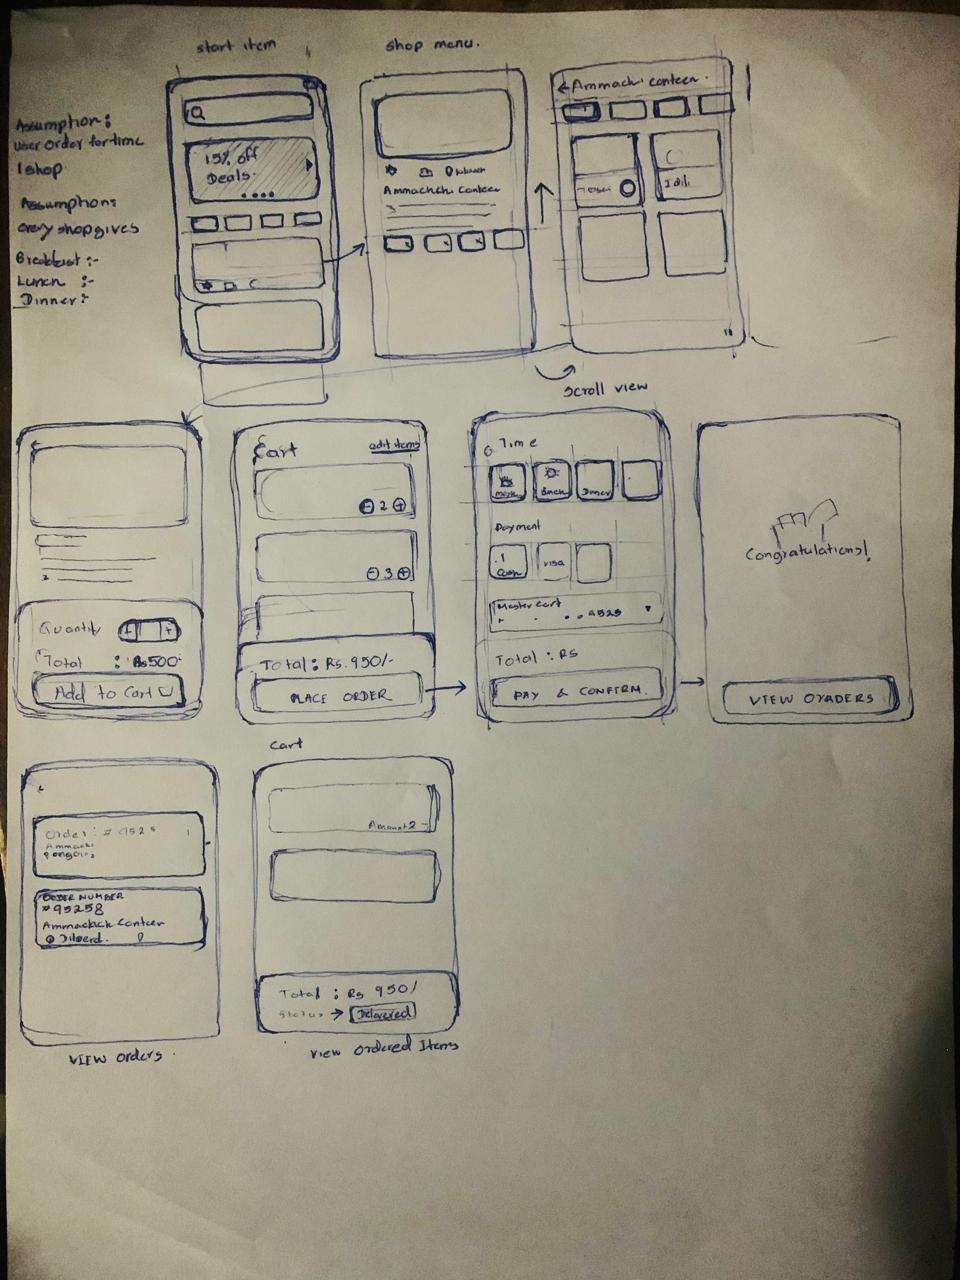 start item
shop menu.
Assumption:
User Order for time
1 shop
Assumptions
every shop gives
Breakfast :-
Lunch :-
Dinner :-
15% off
Deals.
Ammachi Canteen
Ammachi Canteen.
Idli
Scroll view
Quantity
- +
Total : Rs 500
Add to Cart
Cart
edit items
- 2 +
- 3 +
Total : Rs. 950/-
PLACE ORDER
Time
Dinner
Payment
Cash
VISA
Master Cart
9525
Total : Rs
PAY & CONFIRM.
Congratulations!
VIEW OYADERS
Order : # 9525
ORDER NUMBER
#95258
VIEW Orders.
Cart
Amount 2 -
Total : Rs 950/
Status → Delivered
View Ordered Items